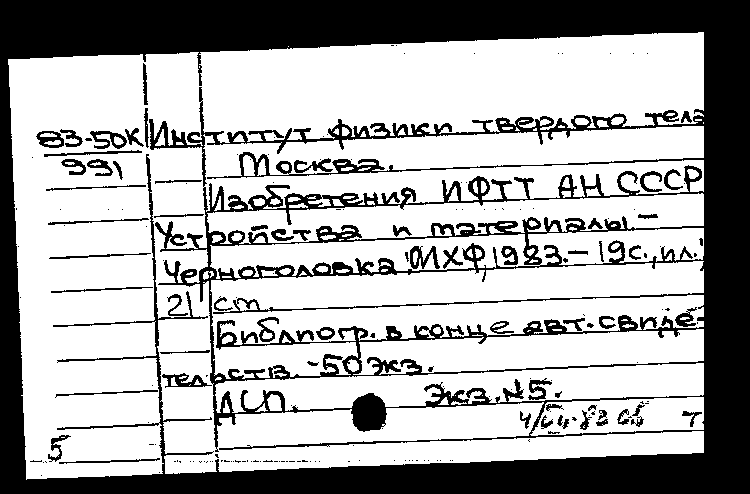 83-50К Институт физики твердого тела
991 Москва.
Изобретения ИФТТ АН СССР
Устройства и материалы.-
Черноголовка: ОИХФ, 1983.- 19с., ил.;
21 см.
Библиогр. в конце авт. свиде-
тельств. - 50 экз.
ДСП. Экз. №5.
т.
5